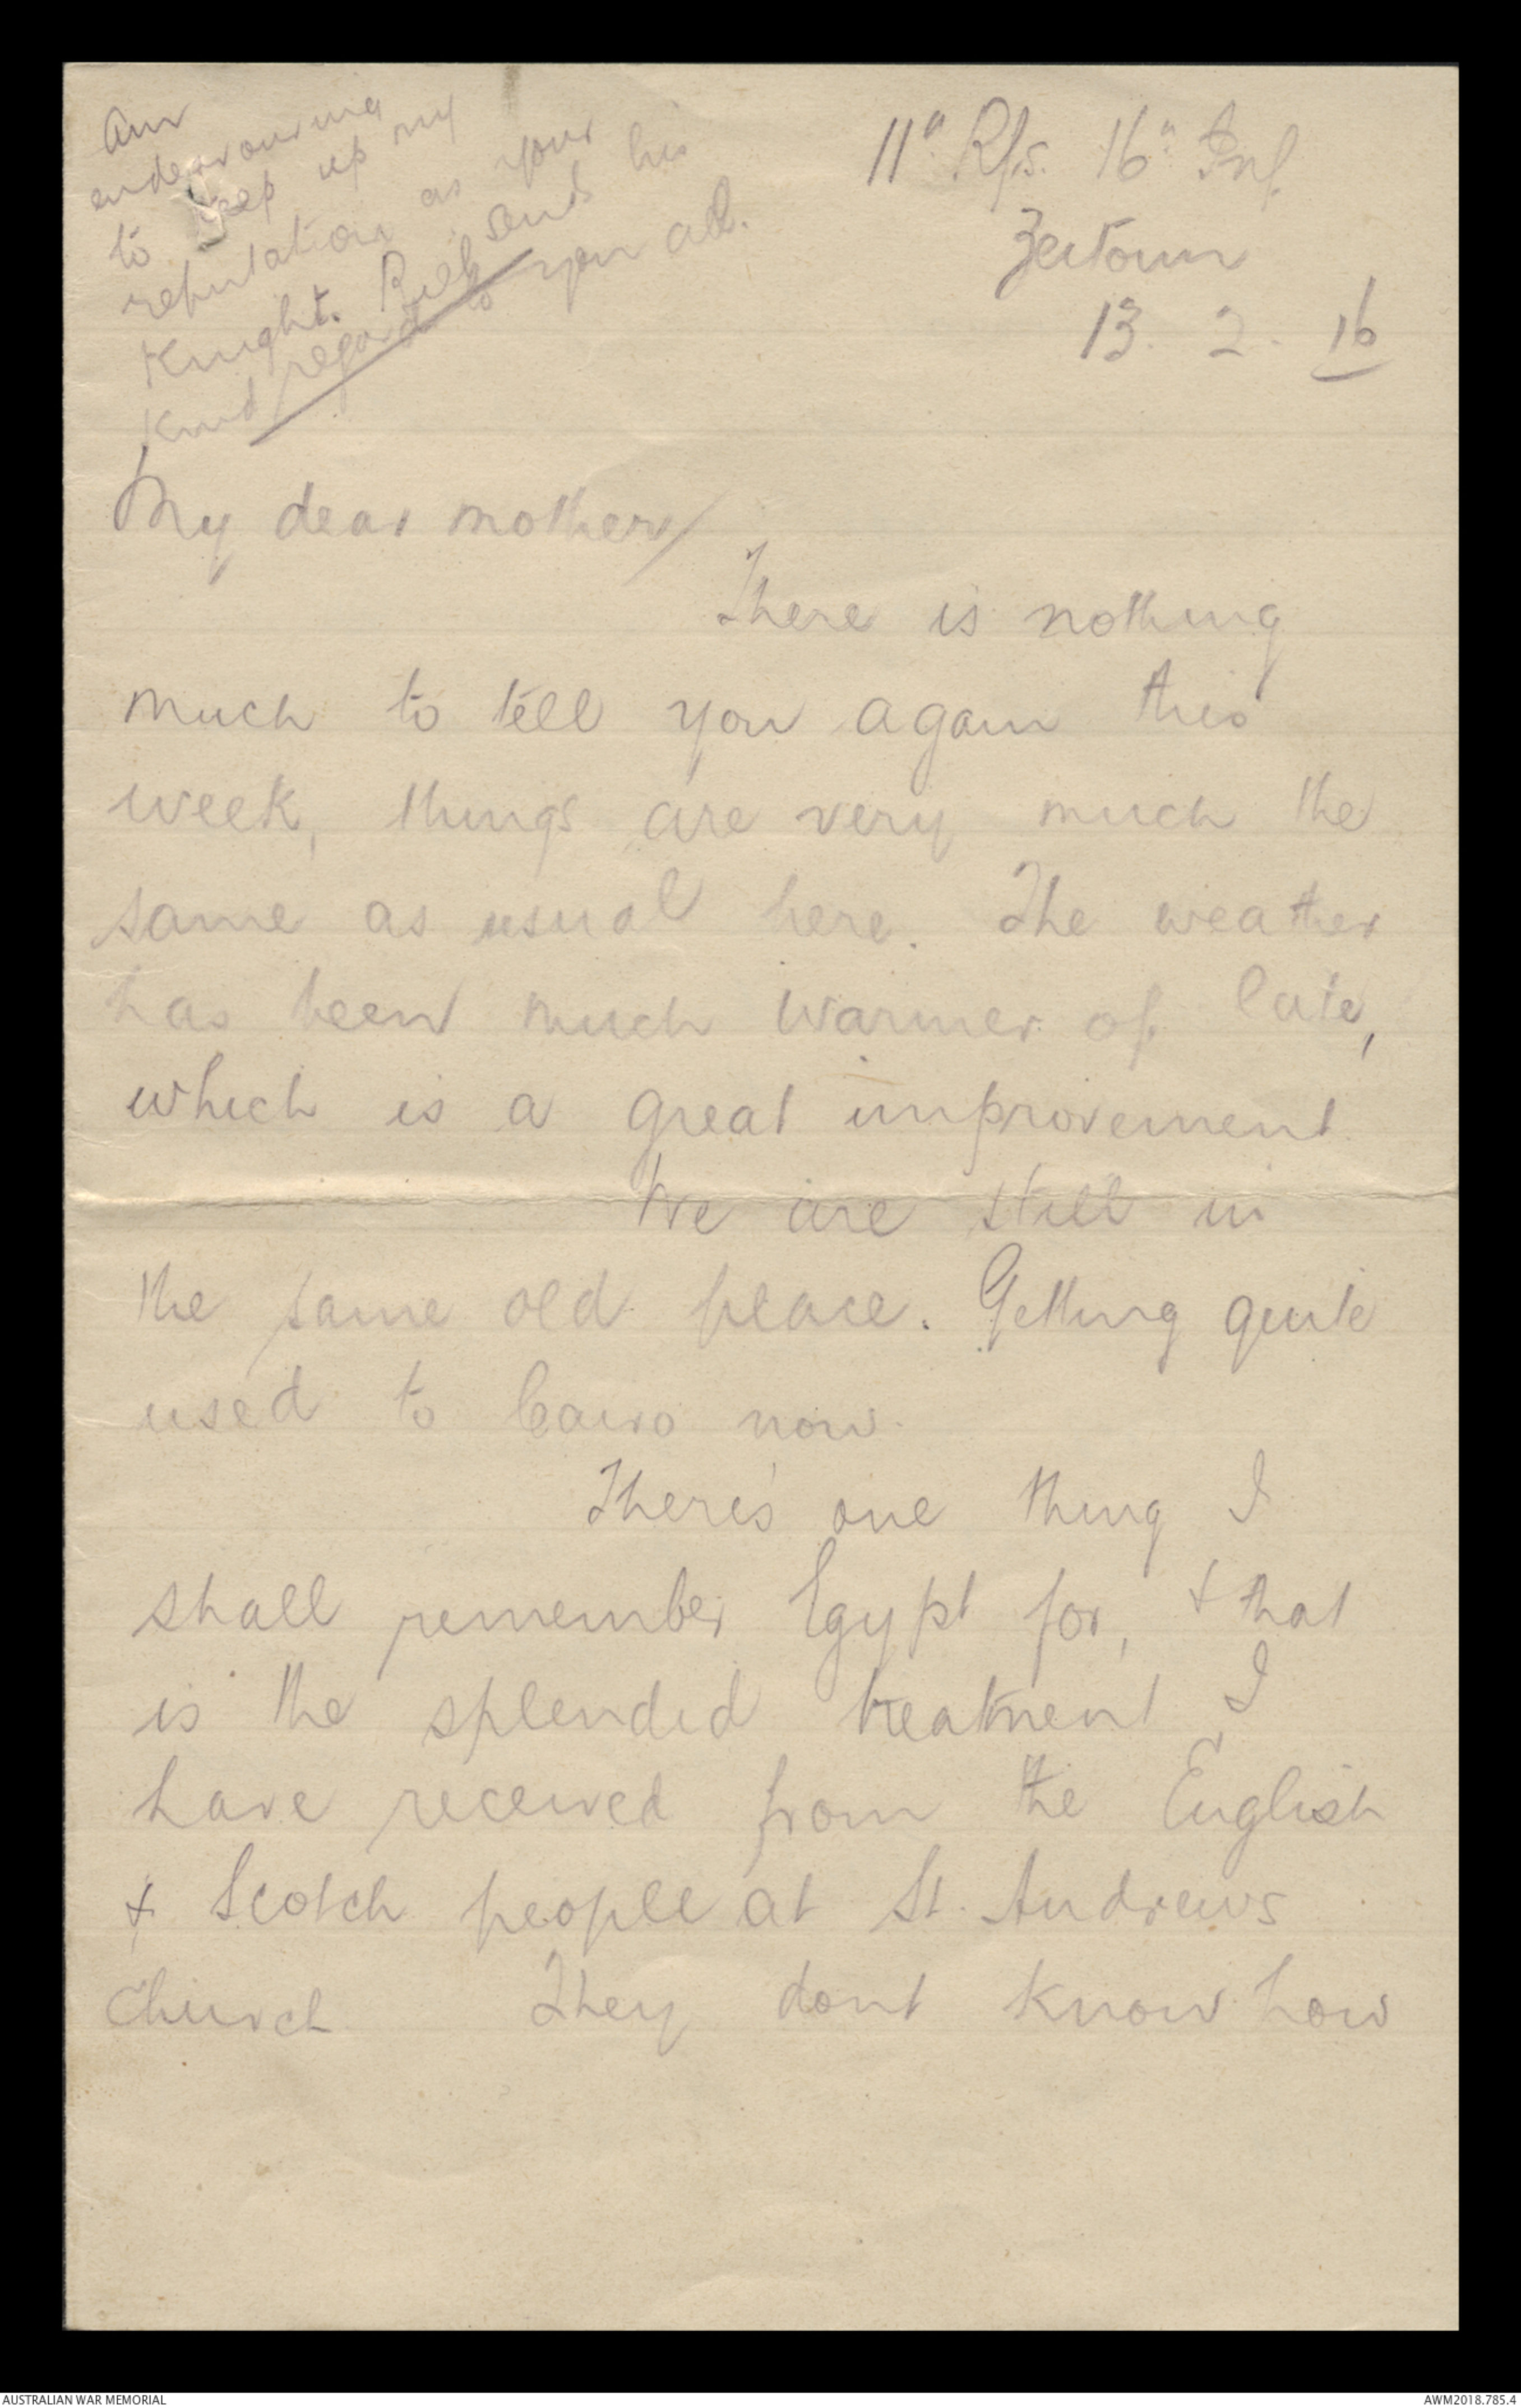 Am
endeavouring
to keep up my
reputation as your
Knight. Rich sends his
Kind regards to you all.
11" Rfs. 16" Inf.
Zeitoun
13. 2. 16
My dear mother/
There is nothing
much to tell you again this
week, things are very much the
same as usual here. The weather
has been much warmer of late,
which is a great improvement
We are still in
the same old place. Getting quite
used to Cairo now.
There's one thing I
shall remember Egypt for, & that
is the splendid treatment I
have received from the English
& Scotch people at St. Andrews
Church They dont know how
AUSTRALIAN WAR MEMORIAL
AWM2018.785.4